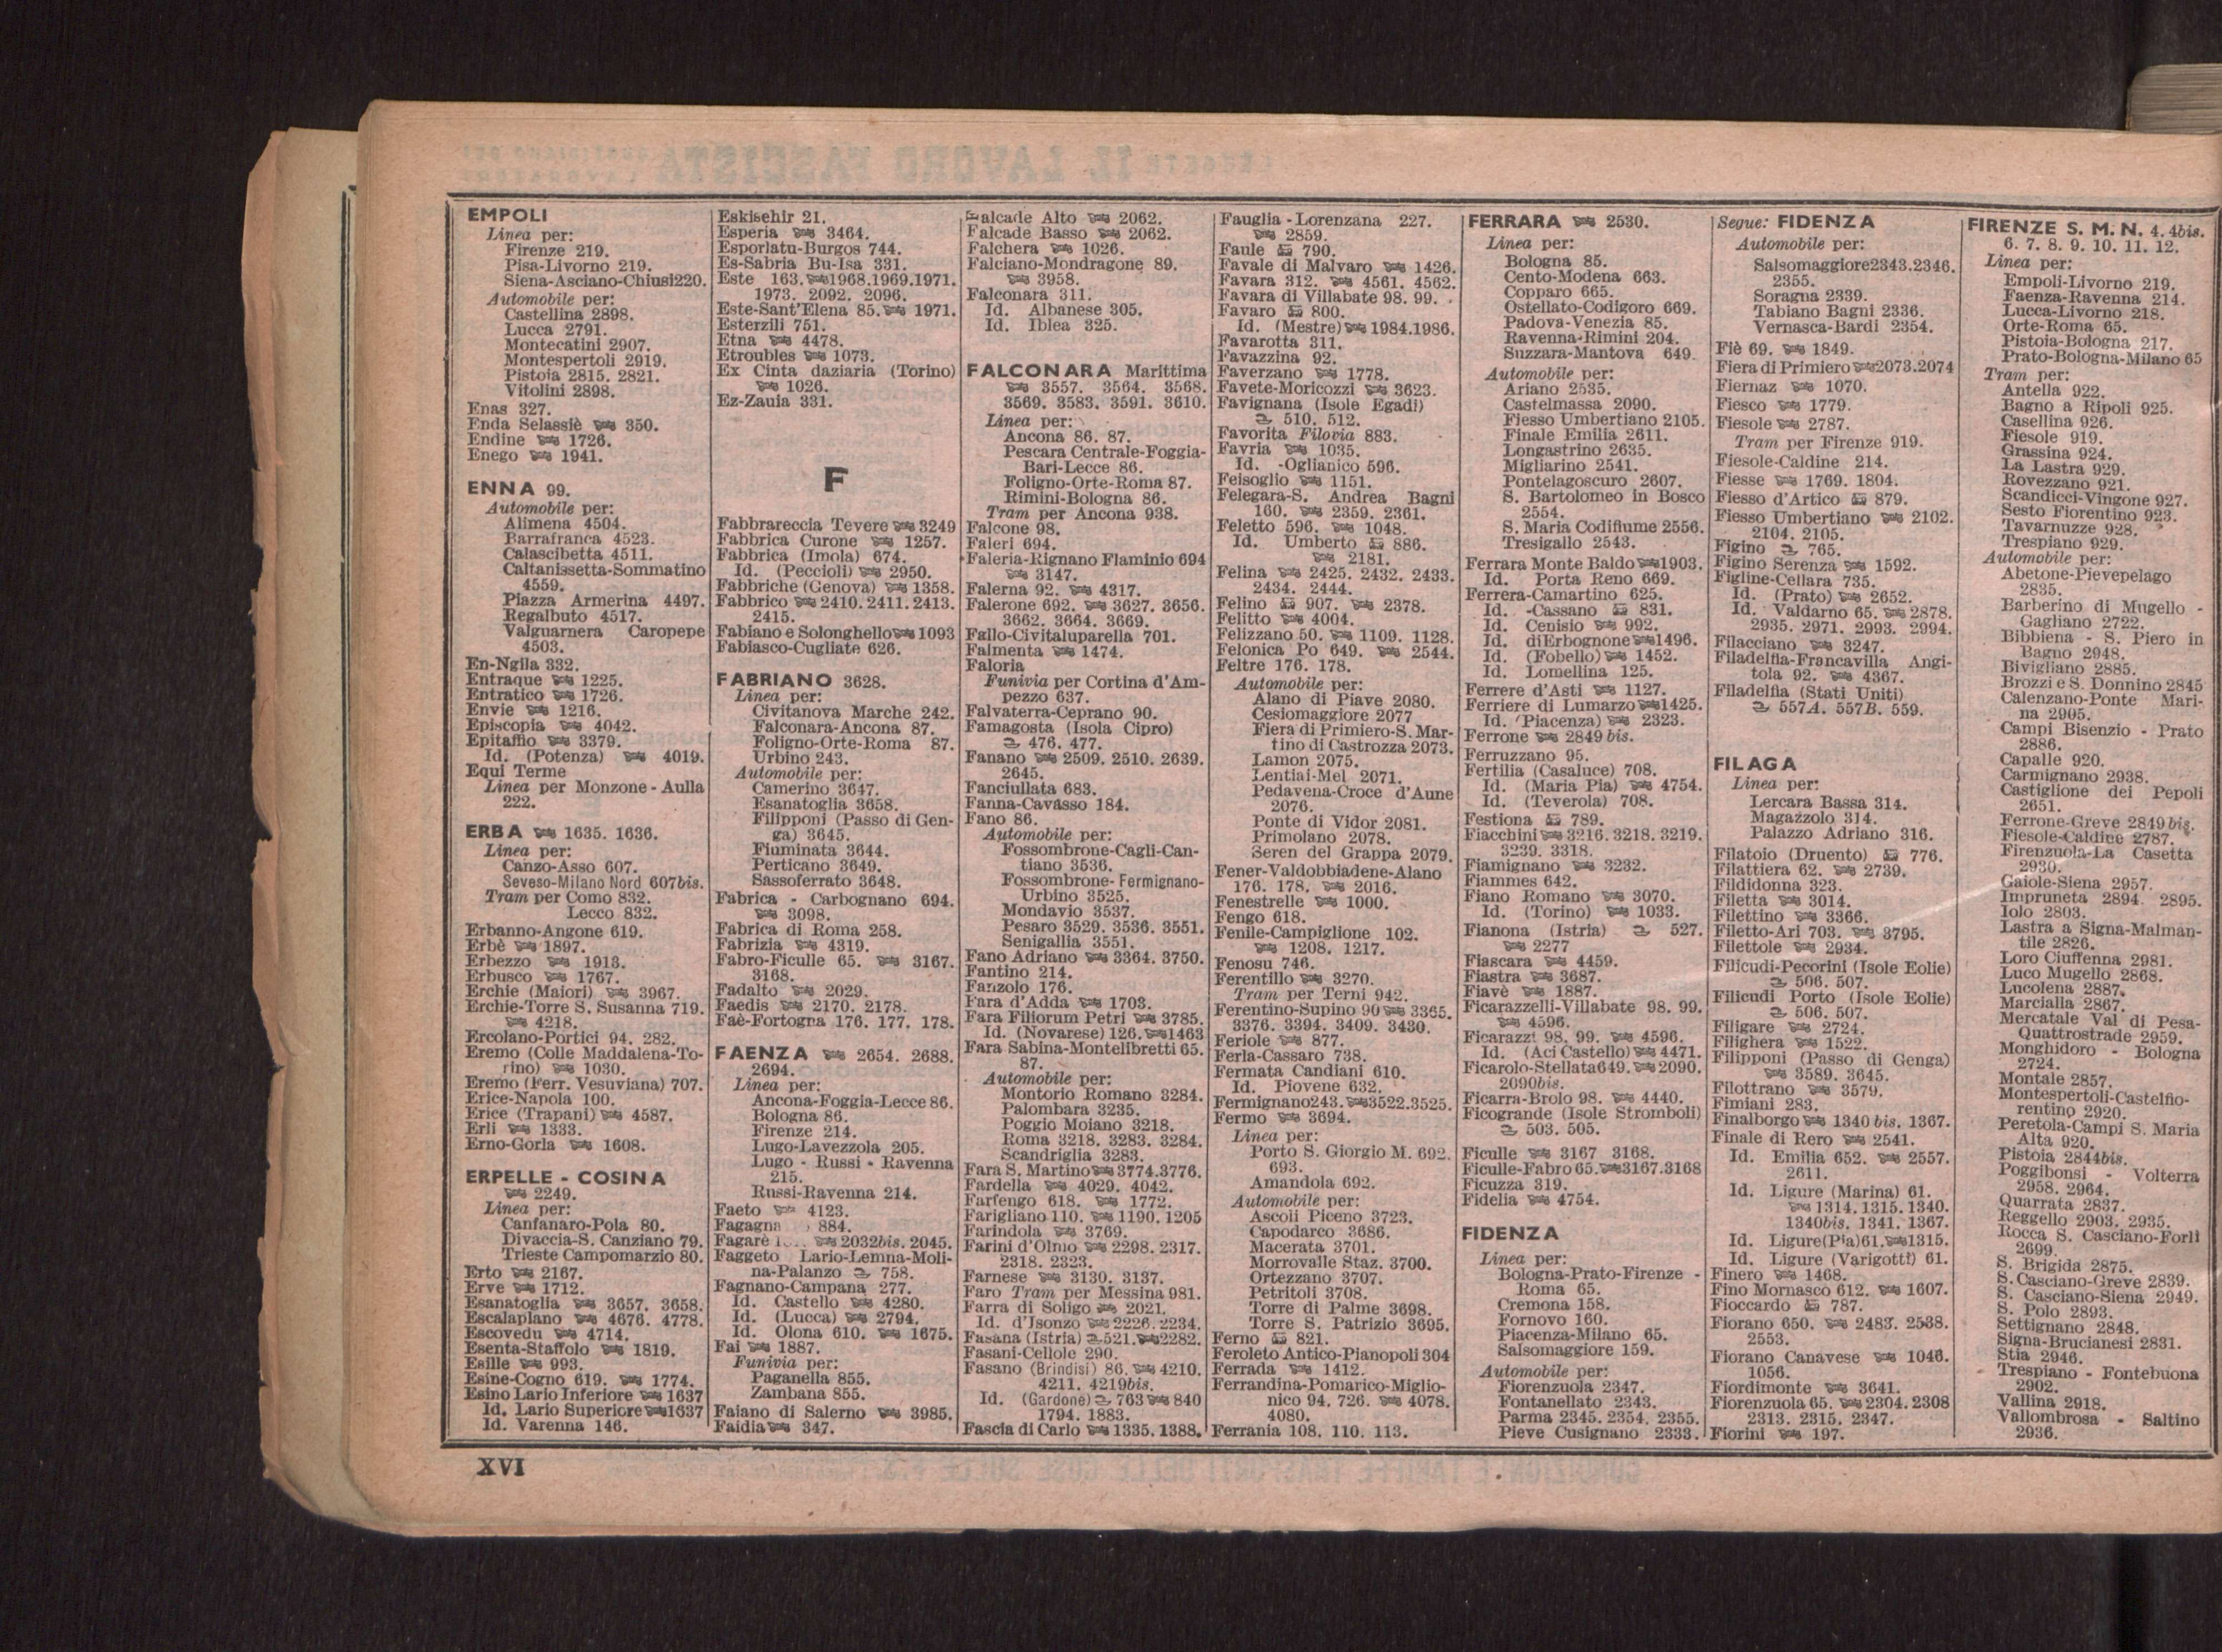 EMPOLI
Linea per:
Firenze 219.
Pisa-Livorno 219.
Siena-Asciano-Chiusi220.
Automobile per:
Castellina 2898.
Lucca 2791.
Montecatini 2907.
Montespertoli 2919.
Pistoia 2815. 2821.
Vitolini 2898.
Enas 327.
Enda Selassiè 350.
Endine 1726.
Enego 1941.
ENNA 99.
Automobile per:
Alimena 4504.
Barrafranca 4523.
Calascibetta 4511.
Caltanissetta-Sommatino
4559.
Piazza Armerina 4497.
Regalbuto 4517.
Valguarnera Caropepe
4503.
En-Ngila 332.
Entraque 1225.
Entratico 1726.
Envie 1216.
Episcopia 4042.
Epitaffio 3379.
Id. (Potenza) 4019.
Equi Terme
Linea per Monzone - Aulla
222.
ERBA 1635. 1636.
Linea per:
Canzo-Asso 607.
Seveso-Milano Nord 607bis.
Tram per Como 832.
Lecco 832.
Erbanno-Angone 619.
Erbè 1897.
Erbezzo 1913.
Erbusco 1767.
Erchie (Maiori) 3967.
Erchie-Torre S. Susanna 719.
4218.
Ercolano-Portici 94. 282.
Eremo (Colle Maddalena-To-
rino) 1030.
Eremo (Ferr. Vesuviana) 707.
Erice-Napola 100.
Erice (Trapani) 4587.
Erli 1333.
Erno-Gorla 1608.
ERPELLE - COSINA
2249.
Linea per:
Canfanaro-Pola 80.
Divaccia-S. Canziano 79.
Trieste Campomarzio 80.
Erto 2167.
Erve 1712.
Esanatoglia 3657. 3658.
Escalaplano 4676. 4778.
Escovedu 4714.
Esenta-Staffolo 1819.
Esille 993.
Esine-Cogno 619. 1774.
Esino Lario Inferiore 1637
Id. Lario Superiore 1637
Id. Varenna 146.
Eskisehir 21.
Esperia 3464.
Esporlatu-Burgos 744.
Es-Sabria Bu-Isa 331.
Este 163. 1968.1969.1971.
1973. 2092. 2096.
Este-Sant'Elena 85. 1971.
Esterzili 751.
Etna 4478.
Etroubles 1073.
Ex Cinta daziaria (Torino)
1026.
Ez-Zauia 331.
F
Fabbrareccia Tevere 3249
Fabbrica Curone 1257.
Fabbrica (Imola) 674.
Id. (Peccioli) 2950.
Fabbriche (Genova) 1358.
Fabbrico 2410. 2411. 2413.
2415.
Fabiano e Solonghello 1093
Fabiasco-Cugliate 626.
FABRIANO 3628.
Linea per:
Civitanova Marche 242.
Falconara-Ancona 87.
Foligno-Orte-Roma 87.
Urbino 243.
Automobile per:
Camerino 3647.
Esanatoglia 3658.
Filipponi (Passo di Gen-
ga) 3645.
Fiuminata 3644.
Perticano 3649.
Sassoferrato 3648.
Fabrica - Carbognano 694.
3098.
Fabrica di Roma 258.
Fabrizia 4319.
Fabro-Ficulle 65. 3167.
3168.
Fadalto 2029.
Faedis 2170. 2178.
Faè-Fortogna 176. 177. 178.
FAENZA 2654. 2688.
2694.
Linea per:
Ancona-Foggia-Lecce 86.
Bologna 86.
Firenze 214.
Lugo-Lavezzola 205.
Lugo - Russi - Ravenna
215.
Russi-Ravenna 214.
Faeto 4123.
Fagagna 884.
Fagarè 2032bis. 2045.
Faggeto Lario-Lemna-Moli-
na-Palanzo 758.
Fagnano-Campana 277.
Id. Castello 4280.
Id. (Lucca) 2794.
Id. Olona 610. 1675.
Fai 1887.
Funivia per:
Paganella 855.
Zambana 855.
Faiano di Salerno 3985.
Faidia 347.
Falcade Alto 2062.
Falcade Basso 2062.
Falchera 1026.
Falciano-Mondragone 89.
3958.
Falconara 311.
Id. Albanese 305.
Id. Iblea 325.
FALCONARA Marittima
3557. 3564. 3568.
3569. 3583. 3591. 3610.
Linea per:
Ancona 86. 87.
Pescara Centrale-Foggia-
Bari-Lecce 86.
Foligno-Orte-Roma 87.
Rimini-Bologna 86.
Tram per Ancona 938.
Falcone 98.
Faleri 694.
Faleria-Rignano Flaminio 694
3147.
Falerna 92. 4317.
Falerone 692. 3627. 3656.
3662. 3664. 3669.
Fallo-Civitaluparella 701.
Falmenta 1474.
Faloria
Funivia per Cortina d'Am-
pezzo 637.
Falvaterra-Ceprano 90.
Famagosta (Isola Cipro)
476. 477.
Fanano 2509. 2510. 2639.
2645.
Fanciullata 683.
Fanna-Cavasso 184.
Fano 86.
Automobile per:
Fossombrone-Cagli-Can-
tiano 3536.
Fossombrone-Fermignano-
Urbino 3525.
Mondavio 3537.
Pesaro 3529. 3536. 3551.
Senigallia 3551.
Fano Adriano 3364. 3750.
Fantino 214.
Fanzolo 176.
Fara d'Adda 1703.
Fara Filiorum Petri 3785.
Id. (Novarese) 126. 1463
Fara Sabina-Montelibretti 65.
87.
Automobile per:
Montorio Romano 3284.
Palombara 3235.
Poggio Moiano 3218.
Roma 3218. 3283. 3284.
Scandriglia 3283.
Fara S. Martino 3774.3776.
Fardella 4029. 4042.
Farfengo 618. 1772.
Farigliano 110. 1190. 1205
Farindola 3769.
Farini d'Olmo 2298. 2317.
2318. 2323.
Farnese 3130. 3137.
Faro Tram per Messina 981.
Farra di Soligo 2021.
Id. d'Isonzo 2226. 2234.
Fasana (Istria) 521. 2282.
Fasani-Cellole 290.
Fasano (Brindisi) 86. 4210.
4211. 4219bis.
Id. (Gardone) 763 840
1794. 1883.
Fascia di Carlo 1335. 1388.
Fauglia - Lorenzana 227.
2859.
Faule 790.
Favale di Malvaro 1426.
Favara 312. 4561. 4562.
Favara di Villabate 98. 99.
Favaro 800.
Id. (Mestre) 1984.1986.
Favarotta 311.
Favazzina 92.
Faverzano 1778.
Favete-Moricozzi 3623.
Favignana (Isole Egadi)
510. 512.
Favorita Filovia 883.
Favria 1035.
Id. -Oglianico 596.
Feisoglio 1151.
Felegara-S. Andrea Bagni
160. 2359. 2361.
Feletto 596. 1048.
Id. Umberto 886.
2181.
Felina 2425. 2432. 2433.
2434. 2444.
Felino 907. 2378.
Felitto 4004.
Felizzano 50. 1109. 1128.
Felonica Po 649. 2544.
Feltre 176. 178.
Automobile per:
Alano di Piave 2080.
Cesiomaggiore 2077
Fiera di Primiero-S. Mar-
tino di Castrozza 2073.
Lamon 2075.
Lentiai-Mel 2071.
Pedavena-Croce d'Aune
2076.
Ponte di Vidor 2081.
Primolano 2078.
Seren del Grappa 2079.
Fener-Valdobbiadene-Alano
176. 178. 2016.
Fenestrelle 1000.
Fengo 618.
Fenile-Campiglione 102.
1208. 1217.
Fenosu 746.
Ferentillo 3270.
Tram per Terni 942.
Ferentino-Supino 90 3365.
3376. 3394. 3409. 3430.
Feriole 877.
Ferla-Cassaro 738.
Fermata Candiani 610.
Id. Piovene 632.
Fermignano243. 3522.3525.
Fermo 3694.
Linea per:
Porto S. Giorgio M. 692.
693.
Amandola 692.
Automobile per:
Ascoli Piceno 3723.
Capodarco 3686.
Macerata 3701.
Morrovalle Staz. 3700.
Ortezzano 3707.
Petritoli 3708.
Torre di Palme 3698.
Torre S. Patrizio 3695.
Ferno 821.
Feroleto Antico-Pianopoli 304
Ferrada 1412.
Ferrandina-Pomarico-Miglio-
nico 94. 726. 4078.
4080.
Ferrania 108. 110. 113.
FERRARA 2530.
Linea per:
Bologna 85.
Cento-Modena 663.
Copparo 665.
Ostellato-Codigoro 669.
Padova-Venezia 85.
Ravenna-Rimini 204.
Suzzara-Mantova 649.
Automobile per:
Ariano 2535.
Castelmassa 2090.
Fiesso Umbertiano 2105.
Finale Emilia 2611.
Longastrino 2635.
Migliarino 2541.
Pontelagoscuro 2607.
S. Bartolomeo in Bosco
2554.
S. Maria Codifiume 2556.
Tresigallo 2543.
Ferrara Monte Baldo 1903.
Id. Porta Reno 669.
Ferrera-Camartino 625.
Id. -Cassano 831.
Id. Cenisio 992.
Id. diErbognone 1496.
Id. (Fobello) 1452.
Id. Lomellina 125.
Ferrere d'Asti 1127.
Ferriere di Lumarzo 1425.
Id. (Piacenza) 2323.
Ferrone 2849 bis.
Ferruzzano 95.
Fertilia (Casaluce) 708.
Id. (Maria Pia) 4754.
Id. (Teverola) 708.
Festiona 789.
Fiacchini 3216. 3218. 3219.
3239. 3318.
Fiamignano 3232.
Fiammes 642.
Fiano Romano 3070.
Id. (Torino) 1033.
Fianona (Istria) 527.
2277
Fiascara 4459.
Fiastra 3687.
Fiavè 1887.
Ficarazzelli-Villabate 98. 99.
4596.
Ficarazzi 98. 99. 4596.
Id. (Aci Castello) 4471.
Ficarolo-Stellata649. 2090.
2090bis.
Ficarra-Brolo 98. 4440.
Ficogrande (Isole Stromboli)
503. 505.
Ficulle 3167 3168.
Ficulle-Fabro 65. 3167.3168
Ficuzza 319.
Fidelia 4754.
FIDENZA
Linea per:
Bologna-Prato-Firenze -
Roma 65.
Cremona 158.
Fornovo 160.
Piacenza-Milano 65.
Salsomaggiore 159.
Automobile per:
Fiorenzuola 2347.
Fontanellato 2343.
Parma 2345. 2354. 2355.
Pieve Cusignano 2333.
Segue: FIDENZA
Automobile per:
Salsomaggiore2343.2346.
2355.
Soragna 2339.
Tabiano Bagni 2336.
Vernasca-Bardi 2354.
Fiè 69. 1849.
Fiera di Primiero 2073.2074
Fiernaz 1070.
Fiesco 1779.
Fiesole 2787.
Tram per Firenze 919.
Fiesole-Caldine 214.
Fiesse 1769. 1804.
Fiesso d'Artico 879.
Fiesso Umbertiano 2102.
2104. 2105.
Figino 765.
Figino Serenza 1592.
Figline-Cellara 735.
Id. (Prato) 2652.
Id. Valdarno 65. 2878.
2935. 2971. 2993. 2994.
Filacciano 3247.
Filadelfia-Francavilla Angi-
tola 92. 4367.
Filadelfia (Stati Uniti)
557A. 557B. 559.
FILAGA
Linea per:
Lercara Bassa 314.
Magazzolo 314.
Palazzo Adriano 316.
Filatoio (Druento) 776.
Filattiera 62. 2739.
Fildidonna 323.
Filetta 3014.
Filettino 3366.
Filetto-Ari 703. 3795.
Filettole 2934.
Filicudi-Pecorini (Isole Eolie)
506. 507.
Filicudi Porto (Isole Eolie)
506. 507.
Filigare 2724.
Filighera 1522.
Filipponi (Passo di Genga)
3589. 3645.
Filottrano 3579.
Fimiani 283.
Finalborgo 1340 bis. 1367.
Finale di Rero 2541.
Id. Emilia 652. 2557.
2611.
Id. Ligure (Marina) 61.
1314. 1315. 1340.
1340bis. 1341. 1367.
Id. Ligure(Pia)61. 1315.
Id. Ligure (Varigotti) 61.
Finero 1468.
Fino Mornasco 612. 1607.
Fioccardo 787.
Fiorano 650. 2483. 2538.
2553.
Fiorano Canavese 1046.
1056.
Fiordimonte 3641.
Fiorenzuola 65. 2304. 2308
2313. 2315. 2347.
Fiorini 197.
FIRENZE S. M. N. 4. 4bis.
6. 7. 8. 9. 10. 11. 12.
Linea per:
Empoli-Livorno 219.
Faenza-Ravenna 214.
Lucca-Livorno 218.
Orte-Roma 65.
Pistoia-Bologna 217.
Prato-Bologna-Milano 65
Tram per:
Antella 922.
Bagno a Ripoli 925.
Casellina 926.
Fiesole 919.
Grassina 924.
La Lastra 929.
Rovezzano 921.
Scandicci-Vingone 927.
Sesto Fiorentino 923.
Tavarnuzze 928.
Trespiano 929.
Automobile per:
Abetone-Pievepelago
2835.
Barberino di Mugello -
Gagliano 2722.
Bibbiena - S. Piero in
Bagno 2948.
Bivigliano 2885.
Brozzi e S. Donnino 2845
Calenzano-Ponte Mari-
na 2905.
Campi Bisenzio - Prato
2886.
Capalle 920.
Carmignano 2938.
Castiglione dei Pepoli
2651.
Ferrone-Greve 2849bis.
Fiesole-Caldine 2787.
Firenzuola-La Casetta
2930.
Gaiole-Siena 2957.
Impruneta 2894. 2895.
Iolo 2803.
Lastra a Signa-Malman-
tile 2826.
Loro Ciuffenna 2981.
Luco Mugello 2868.
Lucolena 2887.
Marcialla 2867.
Mercatale Val di Pesa-
Quattrostrade 2959.
Monghidoro - Bologna
2724.
Montale 2857.
Montespertoli-Castelfio-
rentino 2920.
Peretola-Campi S. Maria
Alta 920.
Pistoia 2844bis.
Poggibonsi - Volterra
2958. 2964.
Quarrata 2837.
Reggello 2903. 2935.
Rocca S. Casciano-Forlì
2699.
S. Brigida 2875.
S. Casciano-Greve 2839.
S. Casciano-Siena 2949.
S. Polo 2893.
Settignano 2848.
Signa-Brucianesi 2831.
Stia 2946.
Trespiano - Fontebuona
2902.
Vallina 2918.
Vallombrosa - Saltino
2936.
XVI